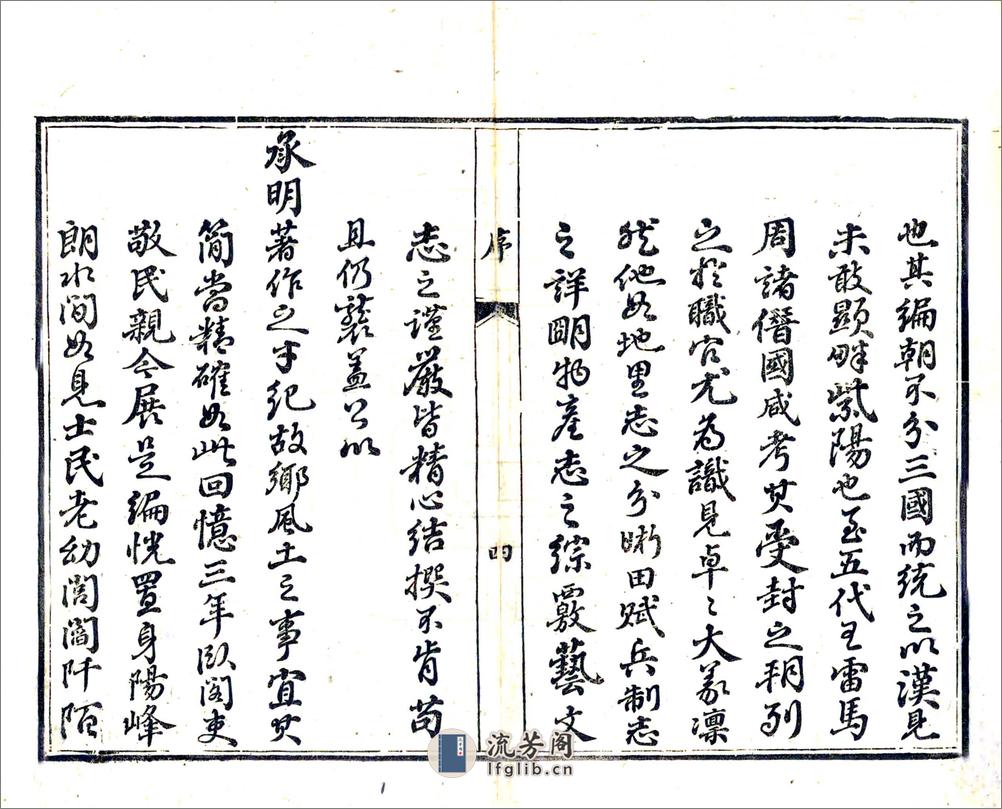 也其編朝不分三國而統之以漢見
未敢顯畔紫陽也至五代王雷馬
周諸僭國咸考其受封之朝列
之於職官尤為識見卓〻大義凛
然他如地里志之分晰田賦兵制志
之詳明物產志之綜覈藝文
序
四
志之謹嚴皆精心結撰不肯苟
且仍襲蓋公以
承明著作之手紀故鄉風土之事宜其
簡當精確如此回憶三年臥閣吏
敬民親今展是編恍置身陽峰
朗水間如見士民老幼閭閻阡陌
流芳阁
lfglib.cn